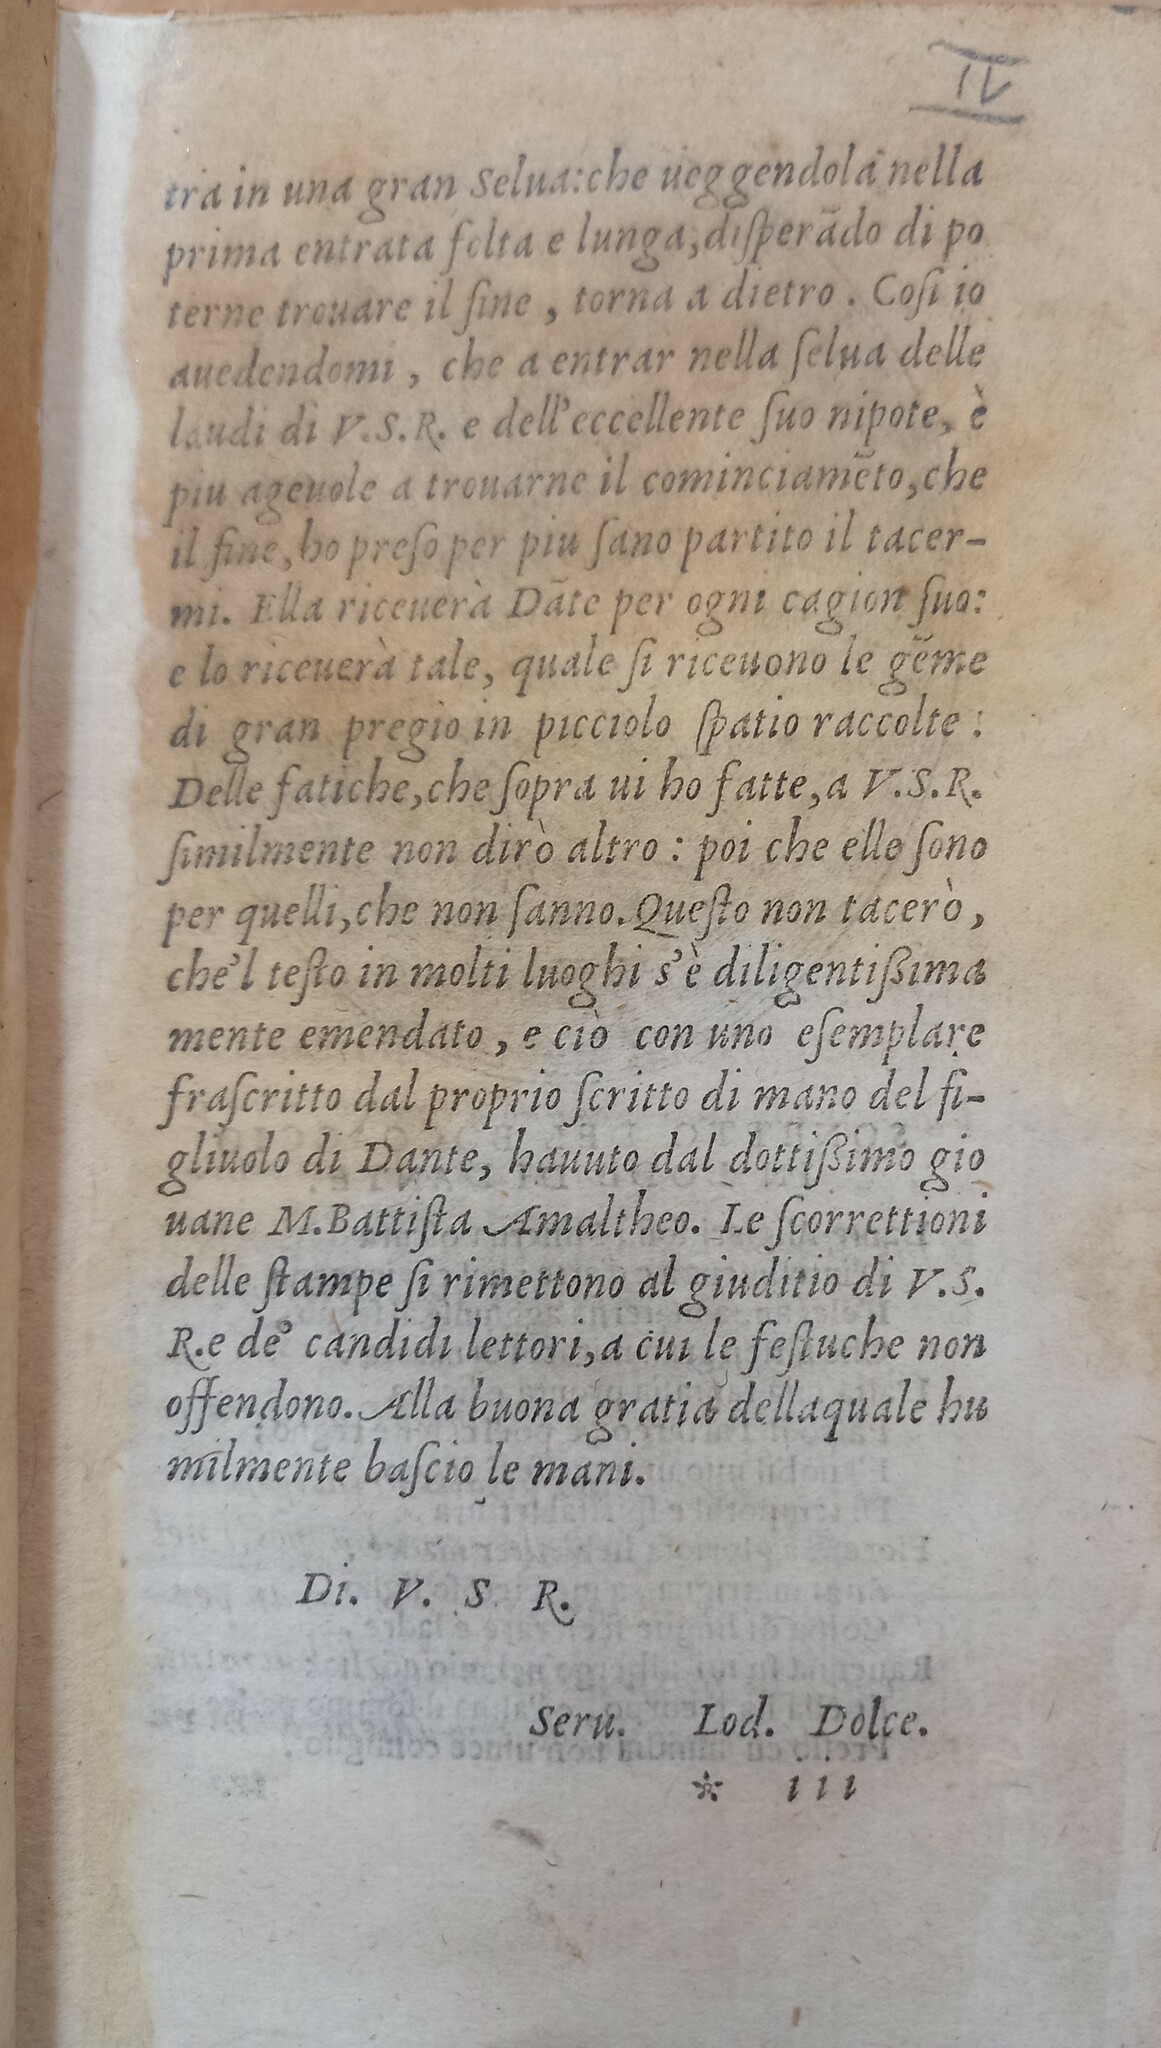 IV
tra in una gran Selua: che ueggendola nella
prima entrata folta e lunga, diſperādo di po
terne trouare il fine, torna a dietro. Coſi io
auedendomi, che a entrar nella ſelua delle
laudi di V.S.R. e dell'eccellente ſuo nipote, è
piu ageuole a trouarne il cominciamēto, che
il fine, ho preſo per piu ſano partito il tacer-
mi. Ella riceuerà Dāte per ogni cagion ſuo:
e lo riceuerà tale, quale ſi riceuono le gēme
di gran pregio in picciolo ſpatio raccolte:
Delle fatiche, che ſopra ui ho fatte, a V.S.R.
ſimilmente non dirò altro: poi che elle ſono
per quelli, che non ſanno. Queſto non tacerò,
che'l teſto in molti luoghi s'è diligentißima
mente emendato, e ciò con uno eſemplare
fraſcritto dal proprio ſcritto di mano del fi-
gliuolo di Dante, hauuto dal dottißimo gio
uane M. Battiſta Amaltheo. Le ſcorrettioni
delle ſtampe ſi rimettono al giuditio di V.S.
R. e de' candidi lettori, a cui le feſtuche non
offendono. Alla buona gratia dellaquale hu
milmente baſcio le mani.
Di. V. S R.
Seru. Lod. Dolce.
* iii